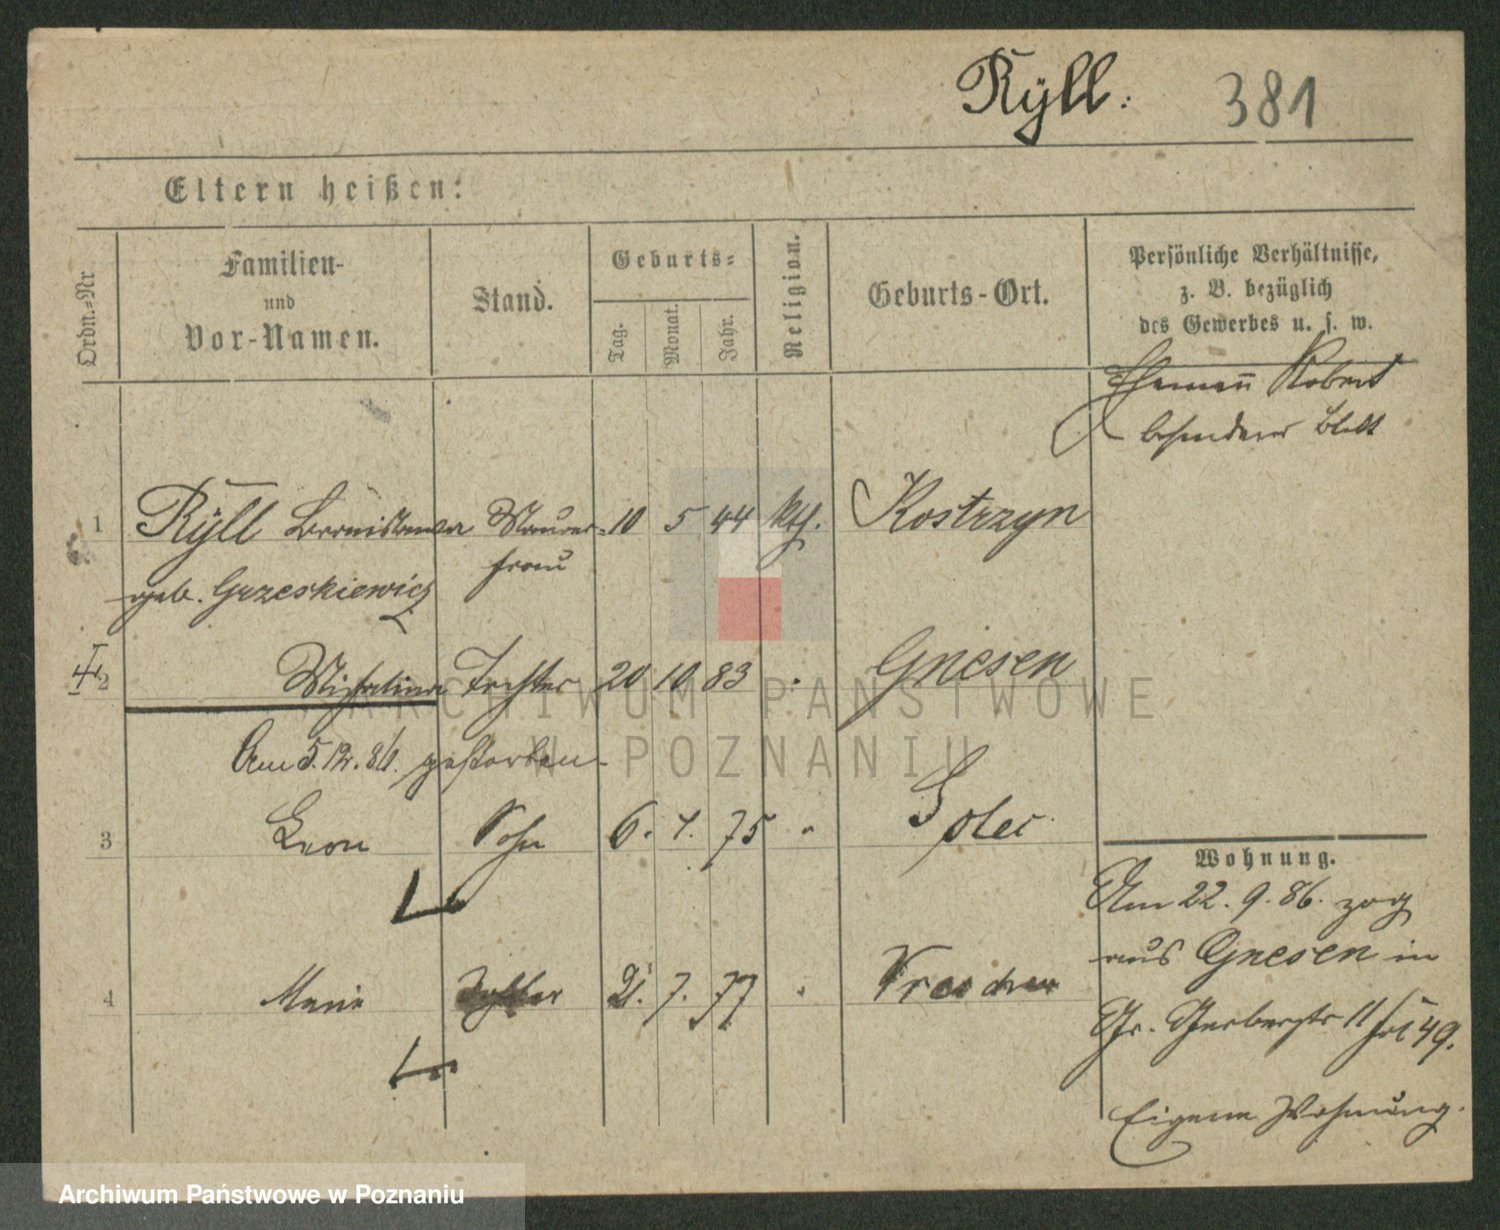 Rÿll. 381
Eltern heißen:
Ordn.-Nr
Familien-
und
Vor-Namen.
Stand.
Geburts-
Tag.
Monat.
Jahr.
Religion.
Geburts-Ort.
Persönliche Verhältnisse,
z. B. bezüglich
des Gewerbes u. s. w.
Ehemann Robert
besonderes Blatt
1 Rÿll Bronislawa Maurer- 10 5 44 kth. Kostrzyn
frau
geb. Grzeskiewicz
2 Michalina Tochter 20 10 83 " Gnesen
Am 5.12.86. gestorben
3 Leon Sohn 6. 4. 75 " Solec
4 Marie Tochter 21. 7. 77 "
Wohnung.
Am 22. 9. 86. zog
aus Gnesen in
Gr. Gerberstr 11 49.
Eigene Wohnung.
ARCHIWUM PAŃSTWOWE
W POZNANIU
Archiwum Państwowe w Poznaniu